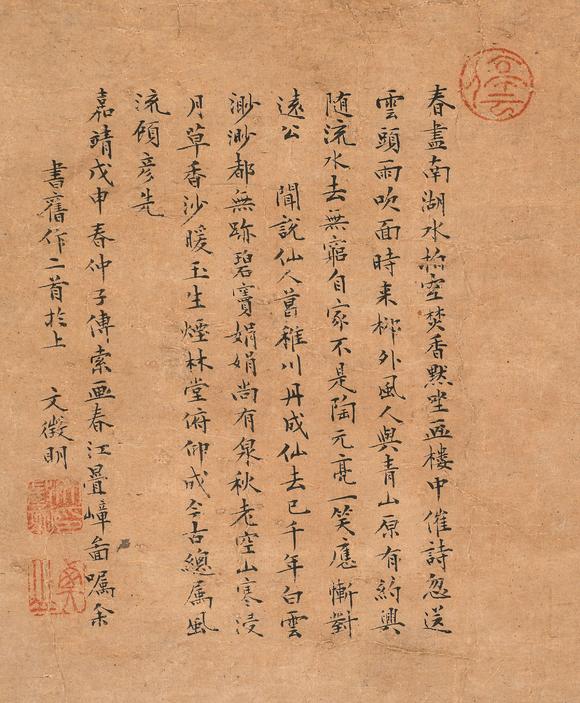 春盡南湖水拍空焚香默坐畫樓中催詩忽送
雲頭雨吹面時来柳外風人與青山原有約興
随流水去無窮自家不是陶元亮一笑應慚對
遠公 聞說仙人葛稚川丹成仙去已千年白雲
渺渺都無跡碧竇娟娟尚有泉秋老空山寒浸
月草香沙暖玉生煙林堂俯仰成今古總属風
流顧彦先
嘉靖戊申春仲子傳索畫春江疊嶂啚囑余
書舊作二首於上 文徵明